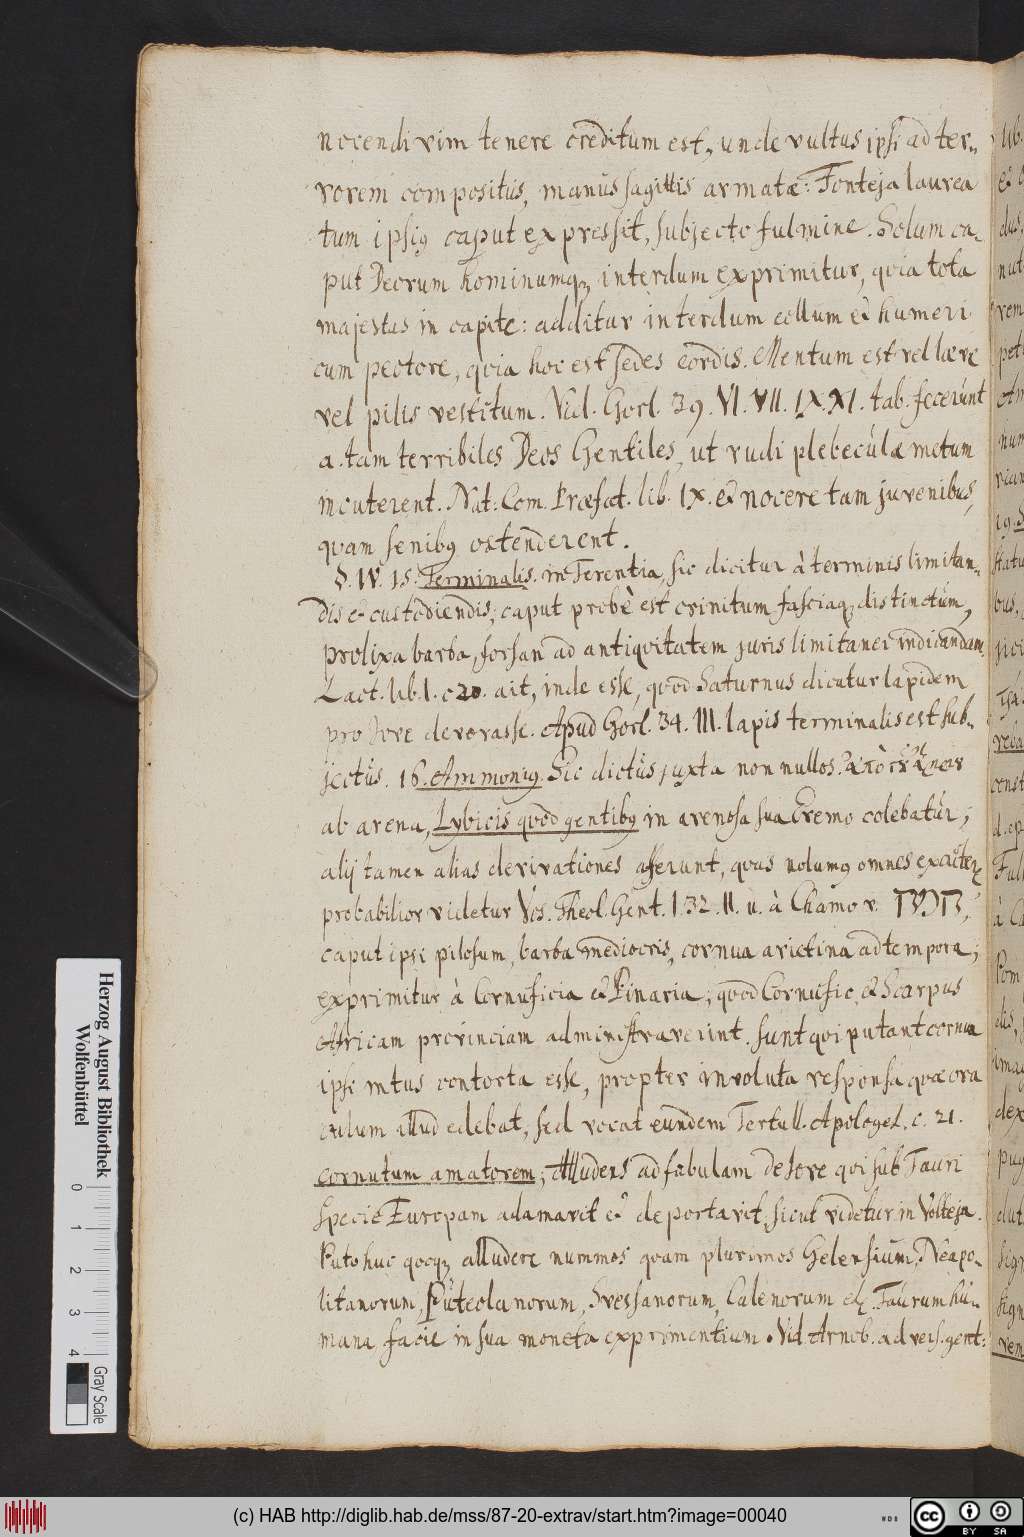 nocendi vim tenere creditum est, unde vultus ipsi ad ter-
rorem compositus, manus sagittis armatæ: Fonteja laurea
tum ipsiꝰ caput expressit, subjecto fulmine. Solum ca-
put Deorum hominumqꝫ interdum exprimitur, quia tota
majestas in capite: additur interdum collum et humeri
cum pectore, quia hoc est sedes cordis. Mentum est vel læve
vel pilis vestitum. Vid. Gorl. 39. VI. VII. IX. XI. tab. fecerunt
a. tam terribiles Deos Gentiles, ut rudi plebeculæ metum
incuterent. Nat. Com. Præfat. lib. IX. et nocere tam juvenibus,
quam senibꝰ ostenderent.
§. IV. 15. Terminalis. in Terentia, sic dicitur à terminis limitan-
dis et custodiendis; caput probè est crinitum fasciaqꝫ distinctum,
prolixa barba, forsan ad antiquitatem juris limitanei indicandam.
Lact. lib. I. c 20. ait, inde esse, quod Saturnus dicatur lapidem
pro Jove devorasse. Apud Gorl. 34. III. lapis terminalis est sub-
jectus. 16. Ammoniꝰ. Sic dictus juxta non nullos
ab arena, Lybicis quod gentibꝰ in arenosa sua Eremo colebatur;
alij tamen alias derivationes afferunt, quas nolumꝰ omnes
probabilior videtur Vos. Theol. Gent. I. 32. II. u. à Chamo v.
caput ipsi pilosum, barba mediocris, cornua arietina ad tempora;
exprimitur à Cornuficia et Pinaria; quod Cornufic. et Scarpus
Africam provinciam administraverint. sunt qui putant cornua
ipsi intus contorta esse, propter involuta responsa quæ ora
culum illud edebat, sed vocat eundem Tertull. Apologet. c. 21.
cornutum amatorem; Alludens ad fabulam de Jove qui sub Tauri
specie Europam adamavit et deportavit, sicut videtur in Volteja.
Puto huc quoqꝫ alludere nummos quam plurimos Gelensium, Neapo-
litanorum, Puteolanorum, Svessanorum, Calenorum etc. Taurum hu-
mana facie in sua moneta exprimentium. Vid Arnob. advers. gent:
Herzog August Bibliothek
Wolfenbüttel
0 1 2 3 4
Gray Scale
(c) HAB http://diglib.hab.de/mss/87-20-extrav/start.htm?image=00040
cc BY SA